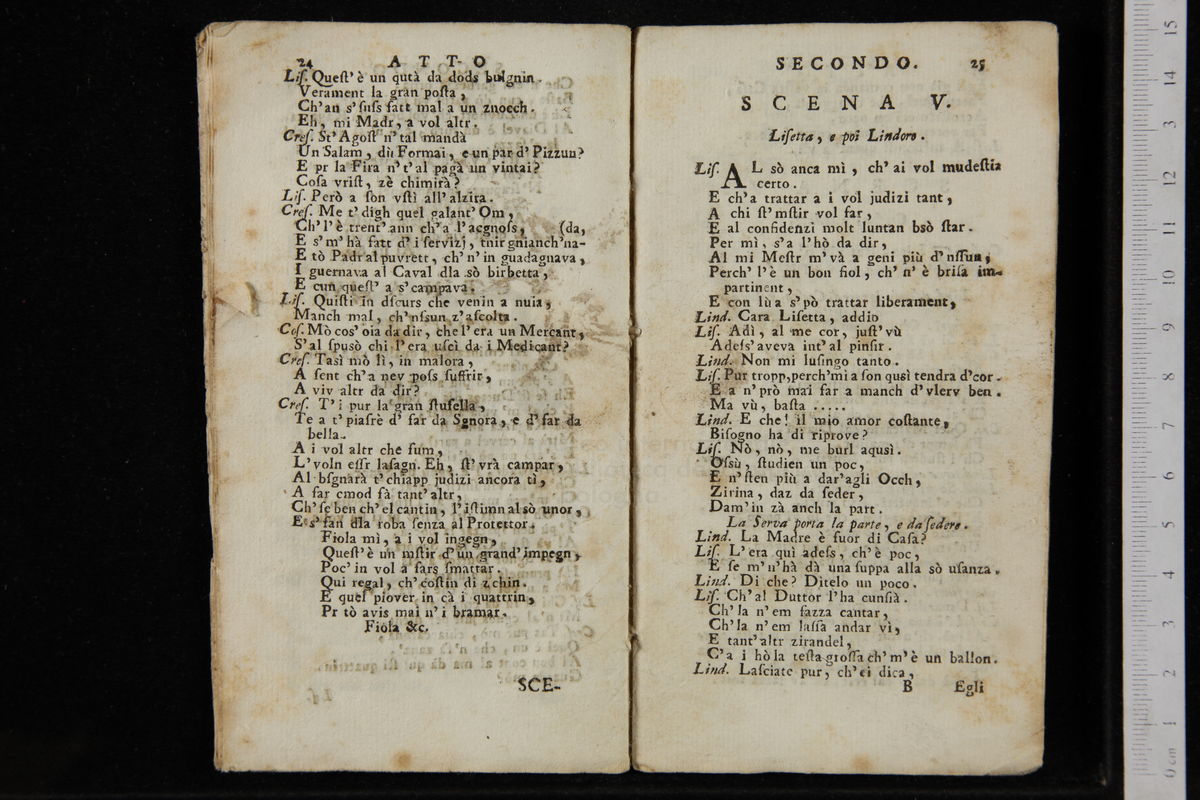 24 ATTO
Lis. Quest' è un qutà da dods bulgnin.
Verament la gran posta,
Ch'an s'fuss fatt mal a un znoech.
Eh, mi Madr, a vol altr.
Cres. St'Agost n'tal mandà
Un Salam, dù Formai, e un par d'Pizzun?
E pr la Fira n't'al pagà un vintai?
Cosa vrist, zè chimirà?
Lis. Però a son vsti all'alzira.
Cres. Me t'digh quel galant'Om,
Ch'l'è trent'ann ch'a l'acgnoss, (da,
E s'm'hà fatt d'i servizj, tnir gnianch'na-
E tò Padr al puvrett, ch'n'in guadagnava,
I guernava al Caval dla sò birbetta,
E cun quest'a s'campava.
Lis. Quisti in dscurs che venin a nuia,
Manch mal, ch'nssun z'ascolta.
Ces. Mò cos'oia da dir, che l'era un Mercant,
S'al spusò chi l'era usei da i Medicant?
Cres. Tasì mò lì, in malora,
A sent ch'a nev poss suffrir,
A viv altr da dir?
Cres. T'i pur la gran stusella,
Te a t'piasrè d'far da Sgnora, e d'far da
bella.
A i vol altr che fum,
L'voln essr lasagn. Eh, st'vrà campar,
Al bsgnarà t'chiapp judizi ancora tì,
A far cmod fà tant'altr,
Ch'se ben ch'el cantin, l'istimn al sò unor,
E s'fan dla roba senza al Protettor.
Fiola mì, a i vol ingegn,
Quest'è un mstir d'un grand'impegn,
Poc'in vol a fars smattar.
Qui regal, ch'costin di zchin.
E quel piover in cà i quattrin,
Pr tò avis mai n'i bramar.
Fiola &c.
SCE-
SECONDO. 25
SCENA V.
Lisetta, e poi Lindoro.
Lis. AL sò anca mì, ch'ai vol mudestia
certo.
E ch'a trattar a i vol judizi tant,
A chi st'mstir vol far,
E al confidenzi molt luntan bsò star.
Per mì, s'a l'hò da dir,
Al mi Mestr m'và a geni più d'nssun,
Perch'l'è un bon fiol, ch'n'è brisa im-
partinent,
E con lù a s'pò trattar liberament,
Lind. Cara Lisetta, addio
Lis. Adì, al me cor, just'vù
Adess'aveva int'al pinsir.
Lind. Non mi lusingo tanto.
Lis. Pur tropp, perch'mi a son qusì tendra d'cor.
E a n'prò mai far a manch d'vlerv ben.
Ma vù, basta .....
Lind. E che! il mio amor costante,
Bisogno ha di riprove?
Lis. Nò, nò, me burl aqusì.
Ossù, studien un poc,
E n'sten più a dar'agli Occh,
Zirina, daz da seder,
Dam'in zà anch la part.
La Serva porta la parte, e da sedere.
Lind. La Madre è fuor di Casa?
Lis. L'era quì adess, ch'è poc,
E se m'n'hà dà una suppa alla sò usanza.
Lind. Di che? Ditelo un poco.
Lis. Ch'al Duttor l'ha cunsià.
Ch'la n'em fazza cantar,
Ch'la n'em lassa andar vì,
E tant'altr zirandel,
C'a i hò la testa grossa ch'm'è un ballon.
Lind. Lasciate pur, ch'ei dica,
B Egli